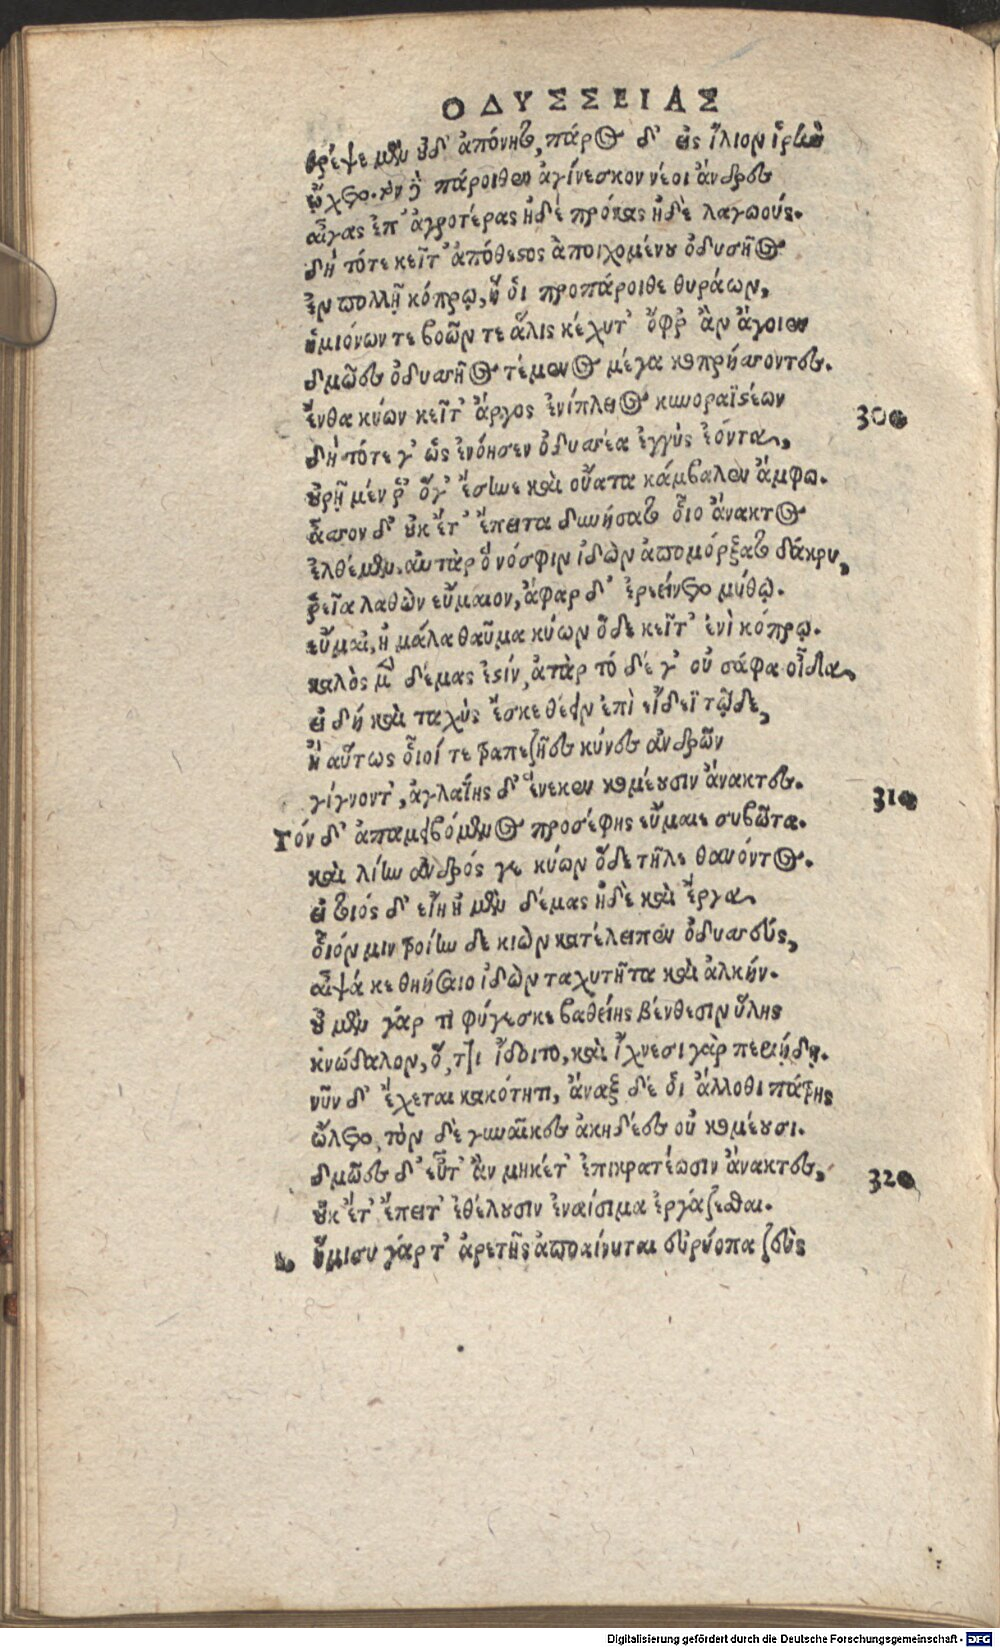 ΟΔΥΣΣΕΙΑΣ
θρέψε μὲν οὐδ' ἀπόνητο, πάρος δ' εἰς ἴλιον ἱρὴν
ᾤχετο. τὸν δὲ πάροιθεν ἀγίνεσκον νέοι ἄνδρες
αἶγας ἐπ' ἀγροτέρας ἠδὲ πρόκας ἠδὲ λαγωούς.
δὴ τότε κεῖτ' ἀπόθεστος ἀποιχομένου ὀδυσῆος
ἐν πολλῇ κόπρῳ, ἥ οἱ προπάροιθε θυράων,
ἡμιόνων τε βοῶν τε ἅλις κέχυτ' ὄφρ' ἂν ἄγοιεν
δμῶες ὀδυσσῆος τέμενος μέγα κοπρήσσοντες.
ἔνθα κύων κεῖτ' ἄργος ἐνίπλειος κυνοραϊστέων 300
δὴ τότε γ' ὡς ἐνόησεν ὀδυσσέα ἐγγὺς ἐόντα,
οὐρῇ μέν ῥ' ὅγ' ἔσηνε καὶ οὔατα κάμβαλεν ἄμφω.
ἆσσον δ' οὐκ ἔτ' ἔπειτα δυνήσατο οἷο ἄνακτος
ἐλθέμεν. αὐτὰρ ὁ νόσφιν ἰδὼν ἀπομόρξατο δάκρυ,
ῥεῖα λαθὼν εὔμαιον, ἄφαρ δ' ἐρεείνετο μύθῳ.
εὔμαι, ἦ μάλα θαῦμα κύων ὅδε κεῖτ' ἐνὶ κόπρῳ.
καλὸς μὲν δέμας ἐστίν, ἀτὰρ τό δέ γ' οὐ σάφα οἶδα,
εἰ δή καὶ ταχὺς ἔσκε θέειν ἐπὶ εἴδεϊ τῷδε,
ἢ αὔτως οἷοί τε τραπεζῆες κύνες ἀνδρῶν
γίγνοντ', ἀγλαΐης δ' ἕνεκεν κομέουσιν ἄνακτες. 310
Τόν δ' ἀπαμειβόμενος προσέφης εὔμαιε συβῶτα.
καὶ λίην ἀνδρός γε κύων ὅδε τῆλε θανόντος.
εἰ τοιός δ' εἴη ἠμὲν δέμας ἠδὲ καὶ ἔργα
οἷόν μιν τροίηνδε κιὼν κατέλειπεν ὀδυσσεύς,
αἶψά κε θηήσαιο ἰδὼν ταχυτῆτα καὶ ἀλκήν.
οὐ μὲν γάρ τι φύγεσκε βαθείης βένθεσιν ὕλης
κνώδαλον, ὅ,τι ἴδοιτο, καὶ ἴχνεσι γὰρ περιῄδη.
νῦν δ' ἔχεται κακότητι, ἄναξ δέ οἱ ἄλλοθι πάτρης
ὤλετο, τὸν δὲ γυναῖκες ἀκηδέες οὐ κομέουσι.
δμῶες δ' εὖτ' ἂν μηκέτ' ἐπικρατέωσιν ἄνακτες, 320
οὐκ ἔτ' ἔπειτ' ἐθέλουσιν ἐναίσιμα ἐργάζεσθαι.
ἥμισυ γάρ τ' ἀρετῆς ἀποαίνυται εὐρύοπα ζεὺς
Digitalisierung gefördert durch die Deutsche Forschungsgemeinschaft - DFG